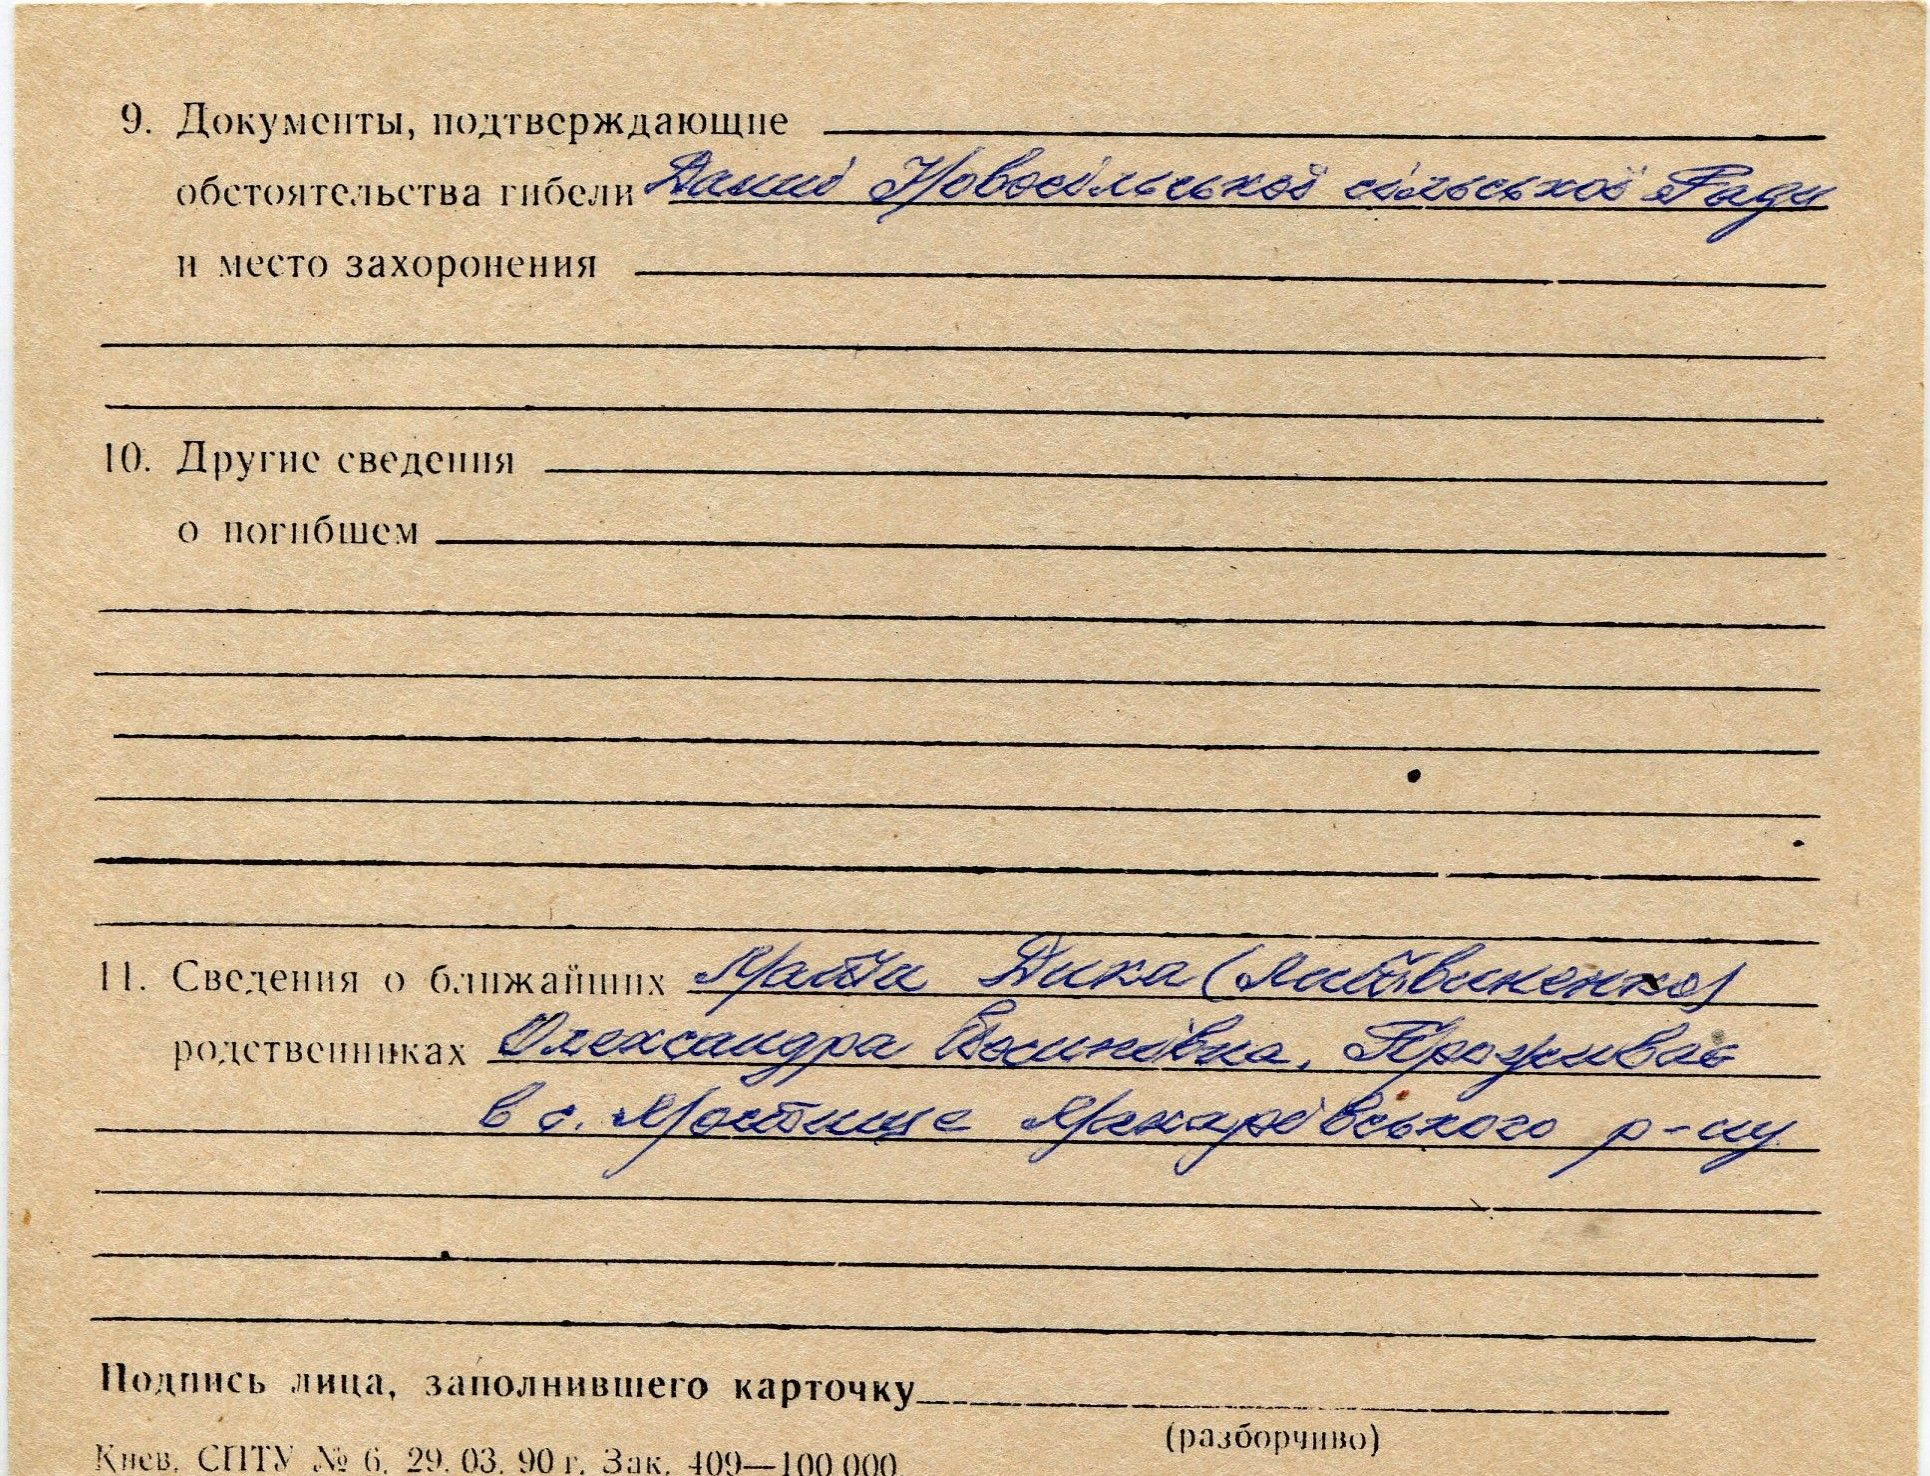 9. Документы, подтверждающие
обстоятельства гибели Данні Новосільської сільської Ради
и место захоронения
10. Другие сведения
о погибшем
11. Сведения о ближайших Мати Дика (Литвиненко)
родственниках Олександра Йосипівна. Проживає
в с. Мостище Макарівського р-ну
Подпись лица, заполнившего карточку
(разборчиво)
Киев. СПТУ № 6. 29. 03. 90 г. Зак. 409—100 000